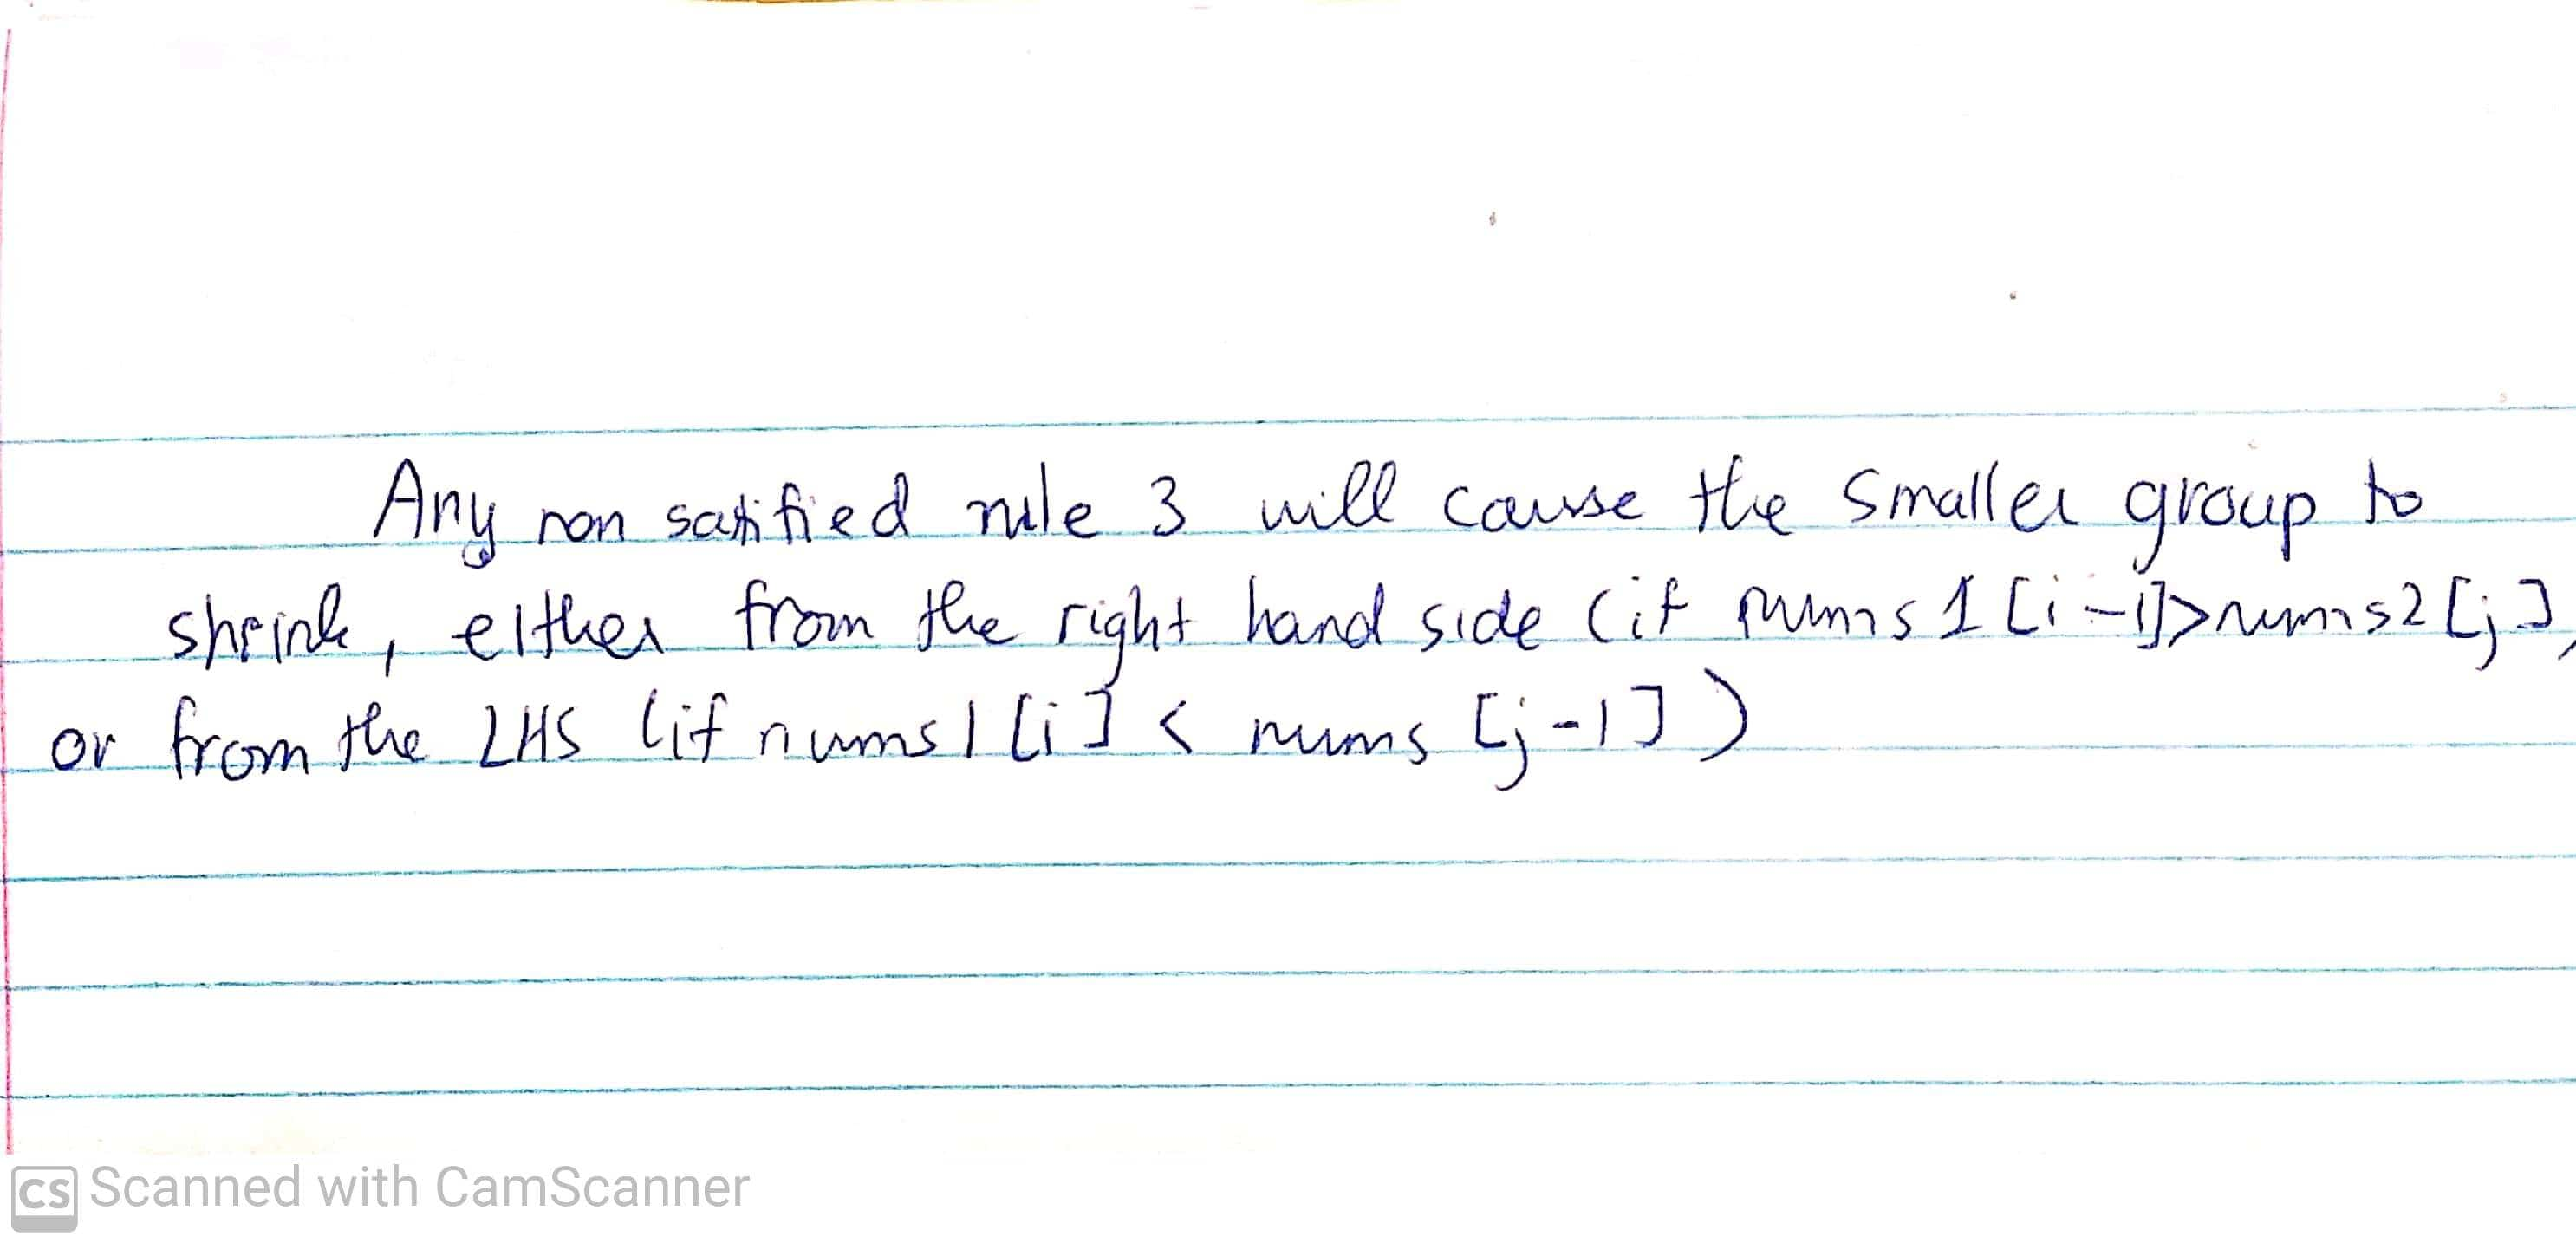 Any non satified rule 3 will cause the smaller group to
shrink, either from the right hand side (if nums1[i-1]>nums2[j],
or from the LHS (if nums1[i] < nums[j-1])
CS Scanned with CamScanner